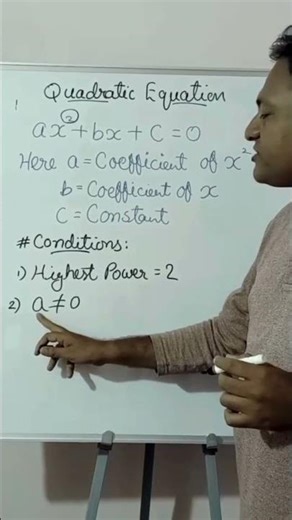 Quadratic Equation
ax²+bx+C=0
Here a=Coefficient of x²
b=Coefficient of x
C=Constant
#Conditions:
1) Highest Power=2
2) a≠0